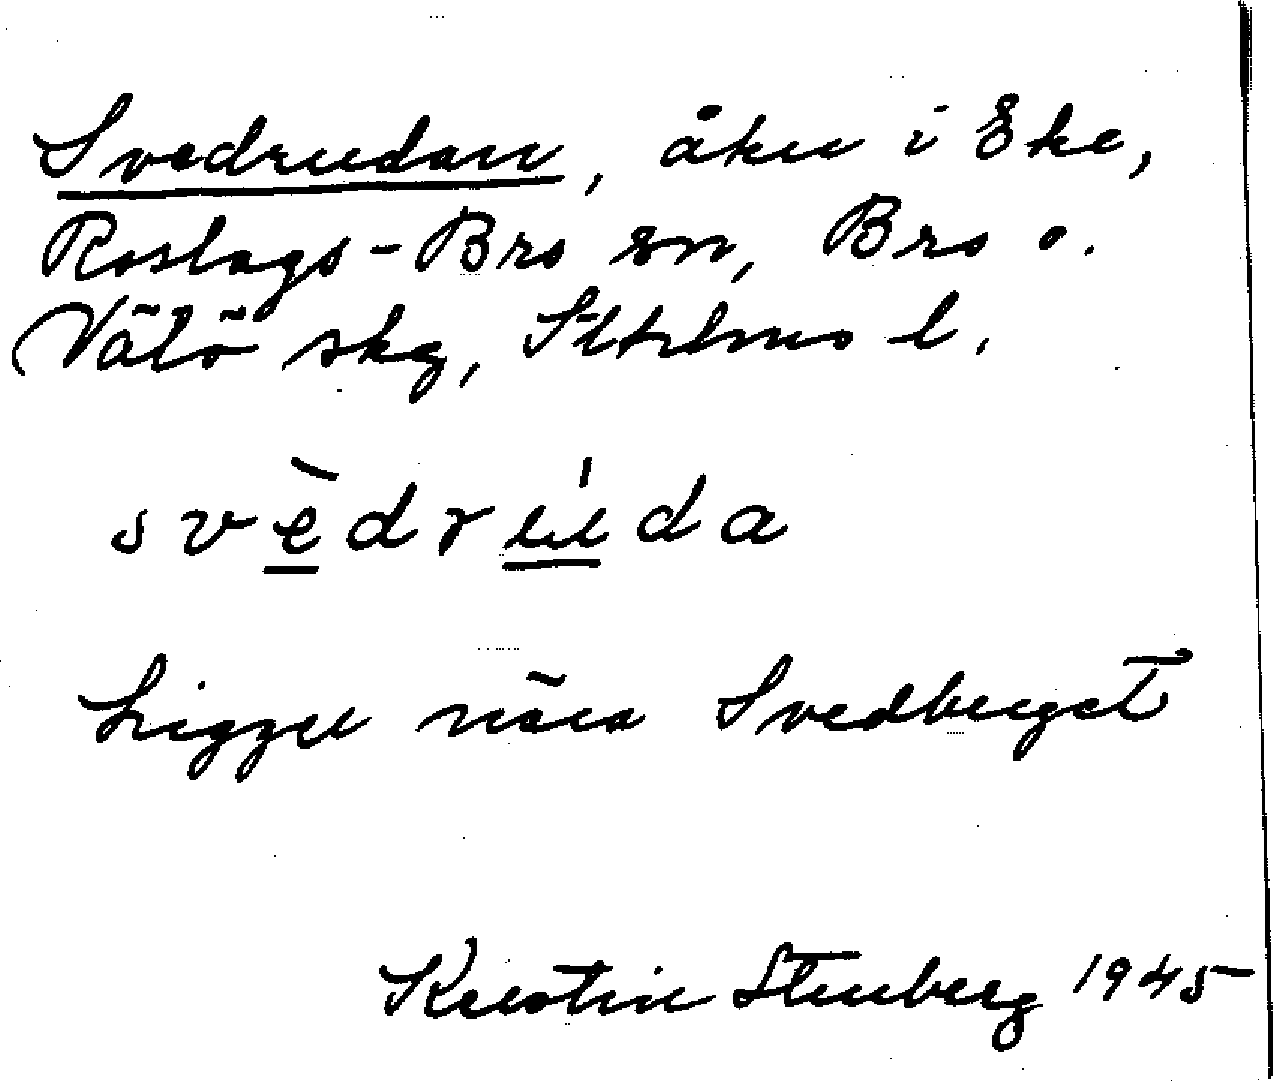 Svedrudan, åker i Eke,
Roslags-Bro sn, Bro o.
Vätö skg, Sthlms l.
svèdrúda
Ligger nära Svedberget
Kerstin Stenberg 1945